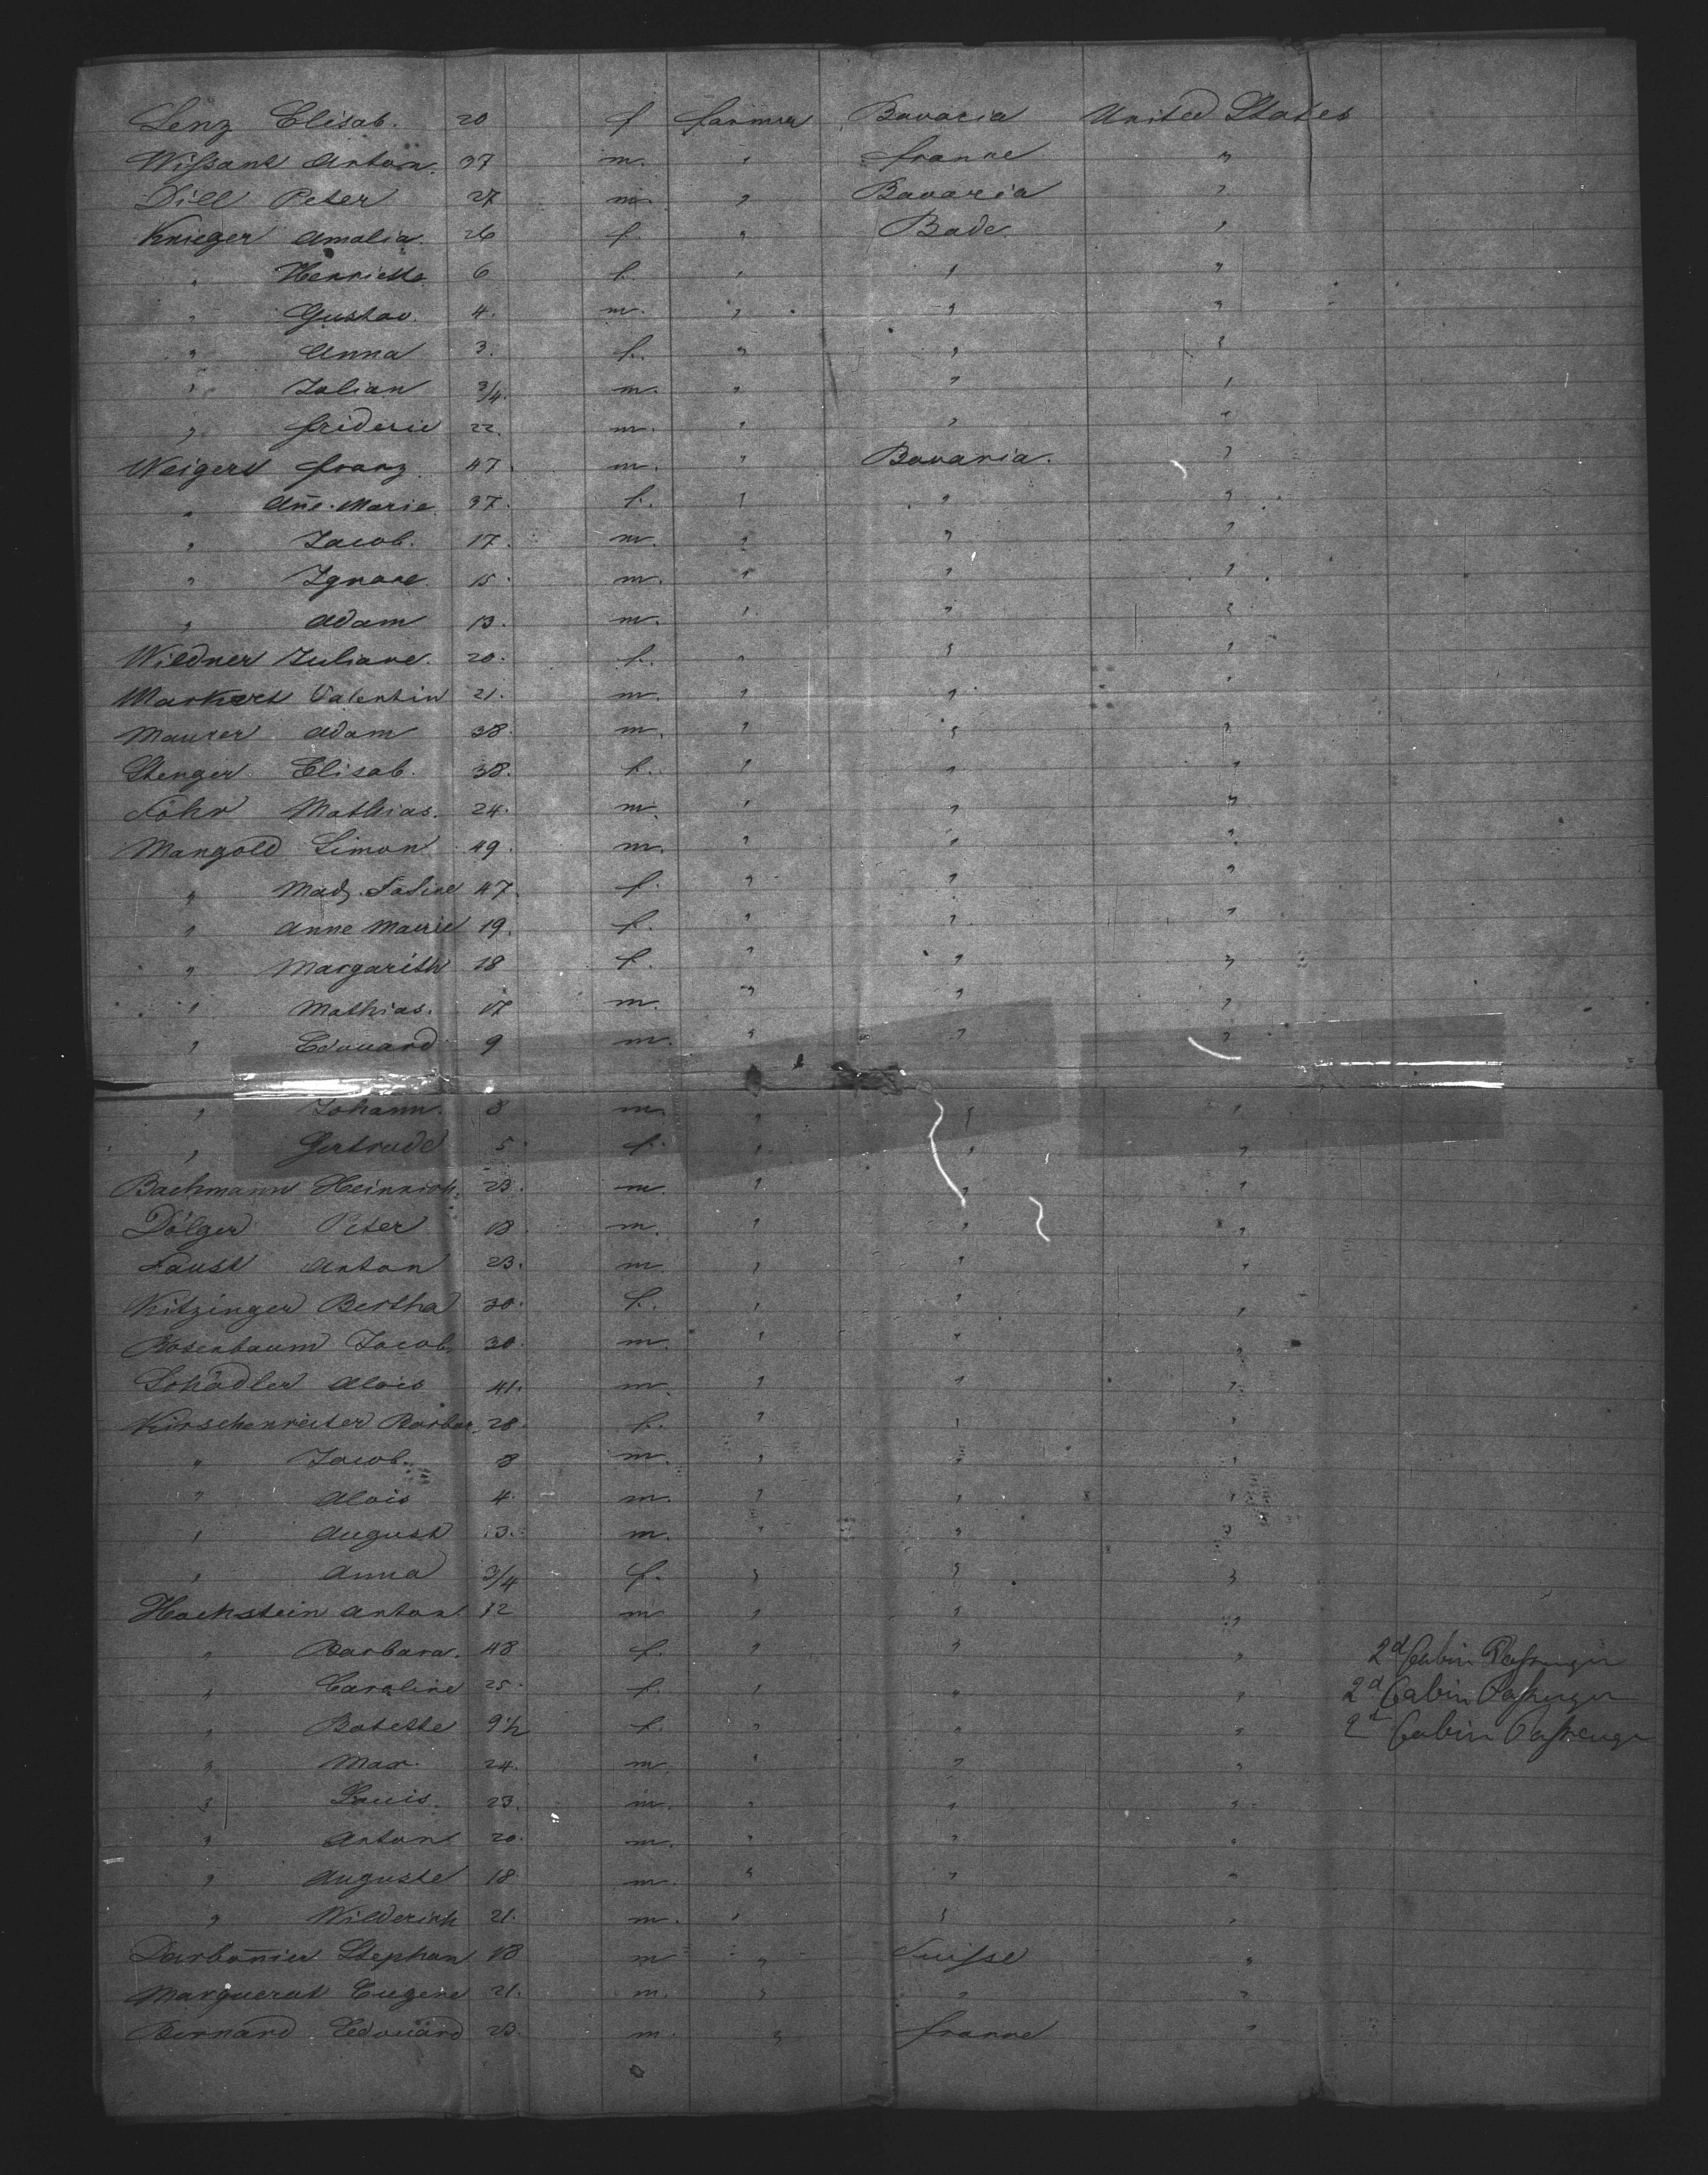 Lenz Elisab. 20 f farmer Bavaria United States
Wißant Anton. 37 m. " france "
Dill Peter 27 m " Bavaria "
Krieger Amalia. 26 f. " Bade "
" Henriette 6 f. " " "
" Gustav. 4. m. " " "
" Anna 3. f. " " "
" Julian 3/4. m. " " "
" frideric 22. m. " " "
Weigert franz 47. m. " Bavaria. "
" Añe-Marie. 37. f. " " "
" Jacob. 17. m. " " "
" Ignace. 15. m. " " "
" Adam 13. m. " " "
Wildner Juliane. 20. f. " " "
Markert Valentin 21. m. " " "
Maurer Adam 38. m. " " "
Stenger Elisab. 38. f. " " "
Föhr Mathias. 24. m. " " "
Mangold Simon 49. m. " " "
" 47. f. " " "
" Anne Marie 19. f. " " "
" Margarith 18 f. " " "
" Mathias. 17 m. " " "
" Edouard 9 m. " " "
" Johann. 8 m. " " "
" Gertrude 5. f. " " "
Bachmann Heinrich. 23. m. " " "
Dölger Peter 18. m. " " "
Faust Anton 23. m " " "
Kitzinger Bertha 30. f. " " "
Rosenbaum Jacob. 30. m. " " "
Schädler Alois 41. m. " " "
Kirschenreiter Barbar. 28. f. " " "
" Jacob. 8 m. " " "
" Alois 4. m. " " "
" August 3. m. " " "
" Anna 3/4 f. " " "
Hockstein Anton 12 m " " "
" Barbara. 48 f. " " " 2d Cabin Paßenger
" Caroline 25. f. " " " 2d Cabin Paßenger
" Babette 9½ f. " " " 2d Cabin Paßenger
" Max. 24. m. " " "
" Louis. 23. m. " " "
" Anton 20. m. " " "
" Auguste 18 m. " " "
" Wilderich 21. m. " " "
Darbonnier Stephan 18 m " Suisse "
Marguerat Eugene 21. m. " " "
Bernard Edouard 23. m. " france "